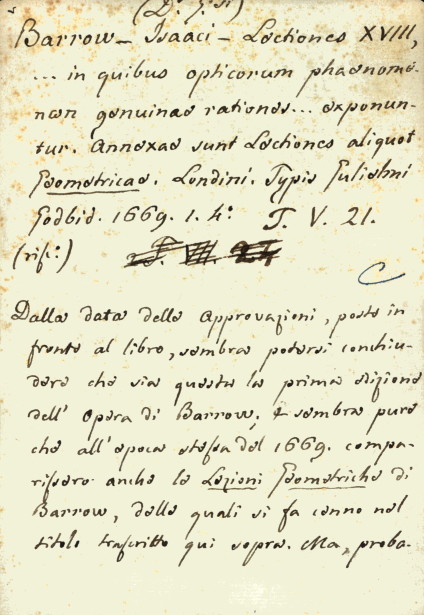 (D. 7. 51)
Barrow - Isaaci - Lectiones XVIII,
... in quibus opticorum phaenome-
nωn genuinae rationes... exponun-
tur. Annexae sunt Lectiones aliquot
Geometricae. Londini. Typis Gulielmi
Godbid. 1669. 1. 4:° T. V. 21.
(rif:°) T. VII. 27
C
Dalla data delle Approvazioni, poste in
fronte al libro, sembra potersi conchiu-
dere che sia questa la prima edizione
dell' Opera di Barrow; e sembra pure
che all'epoca stessa del 1669. compa-
rissero anche le Lezioni Geometriche di
Barrow, delle quali si fa cenno nel
titolo trascritto qui sopra. Ma, proba-